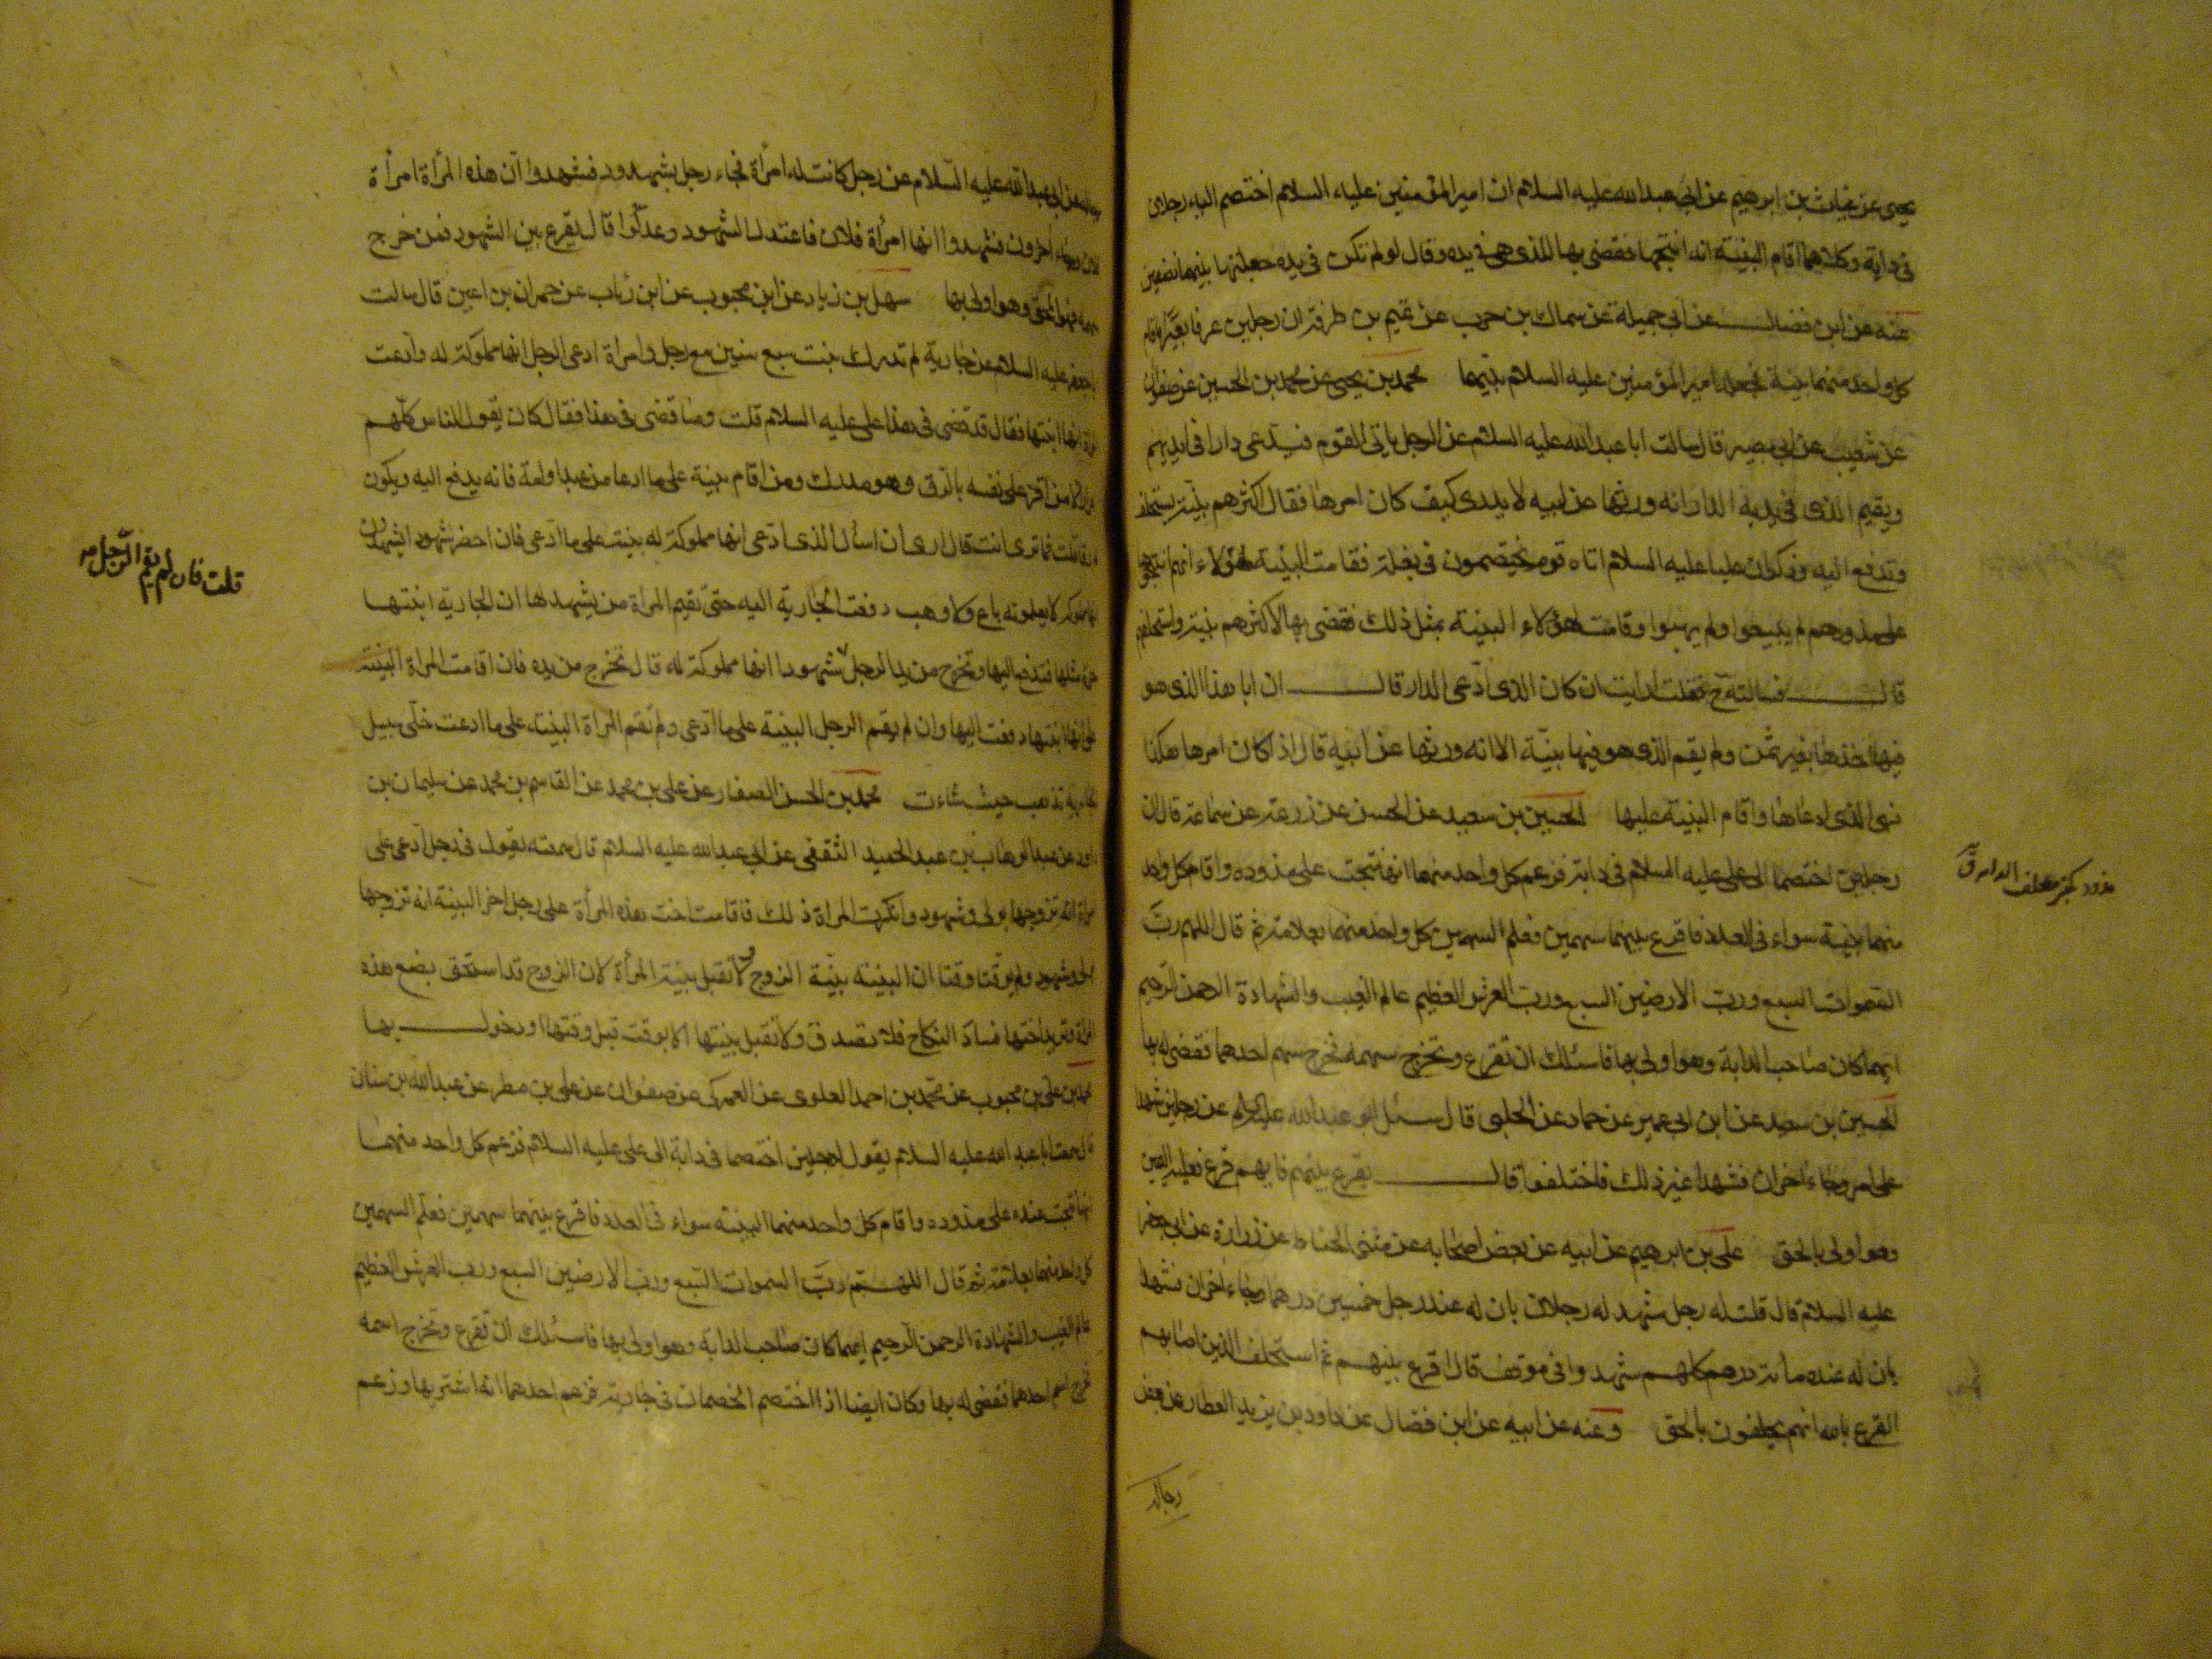 يحيى عن غياث بن ابرهيم عن ابي عبدالله عليه السلام ان امير المؤمنين علياء السلام اختصم اليه رجلان
في دابة وكلاهما اقام البينة انه انتجها فقضى بها للذى هي في يده وقال لو لم تكن في يده جعلتها بينهما نصفين
عنه عن ابن فضال عن ابي جميلة عن سماك بن حرب عن تميم بن طرفة ان رجلين عرفا بعيرا فاقام
كل واحد منهما بينة فجعله امير المؤمنين عليه السلام بينهما محمد بن يحيى عن محمد بن الحسين عن صفوان
عن شعيب عن ابي بصير قال سالت ابا عبدالله عليه السلام عن الرجل ياتي القوم فيدعى دارا في ايديهم
ويقيم الذى في يديه الدار انه ورثها عن ابيه لا يدرى كيف كان امرها فقال اكثرهم بينة يستحلف
وتدفع اليه وذكر ان عليا عليه السلام اتاه قوم يختصمون في بغلة فقامت البينة لهؤلاء انهم انتجوها
على مذودهم لم يبيعوا ولم يهبوا وقامت لهؤلاء البينة بمثل ذلك فقضى بها لاكثرهم بينة واستحلفهم
قال فسالته ح فقلت ارايت ان كان الذى ادعى الدار قال ان ابا هذا الذى هو
فيها اخذها بغير ثمن ولم يقم الذى هو فيها بينة الا انه ورثها عن ابيه قال اذا كان امرها هكذا
فهى للذى ادعاها واقام البينة عليها الحسين بن سعيد عن الحسن عن زرعة عن سماعة قال ان
رجلين اختصما الى على عليه السلام في دابة فزعم كل واحد منهما انها نتجت على مذوده واقام كل واحد
منهما بينة سواء في العدد فاقرع بينهما سهمين فعلم السهمين كل واحد منهما بعلامة ثم قال اللهم ربّ
السموات السبع وربّ الارضين السبع وربّ العرش العظيم عالم الغيب والشهادة الرحمن الرحيم
ايهما كان صاحب الدابة وهو اولى بها فاسئلك ان تقرع وتخرج سهمه فخرج سهم احدهما فقضى له بها
الحسين بن سعيد عن ابن ابي عمير عن حماد عن الحلبى قال سئل ابو عبدالله عليه السلم عن رجلين شهدا
على امر وجاء اخران فشهدا غير ذلك فاختلفوا قال يقرع بينهم فايهم قرع فعليه اليمين
وهو اولى بالحق على بن ابرهيم عن ابيه عن بعض اصحابه عن مثنى الحناط عن زرارة عن ابي جعفر
عليه السلام قال قلت له رجل شهد له رجلان بان له عند رجل خمسين درهما وجاء اخران فشهدا
بان له عنده مأية درهم كلهم شهدوا في موقف قال اقرع بينهم ثم استحلف الذين اصابهم
القرع بالله انهم يحلفون بالحق وعنه عن ابيه عن ابن فضال عن داود بن يزيد العطار عن بعض
رجاله
رجاله عن ابي عبدالله عليه السّلام عن رجل كانت له امرأة فجاء رجل بشهود فشهدوا ان هذه المرأة امرأة
فلان وجاء اخرون فشهدوا انها امرأة فلان فاعتدل الشهود وعدّلوا قال يقرع بين الشهود فمن خرج
سهمه فهو المحق وهو اولى بها سهل بن زياد عن ابن محبوب عن ابن رئاب عن حمران بن اعين قال سالت
ابا جعفر عليه السلام عن جارية لم تدرك بنت سبع سنين مع رجل وامراة ادعى الرجل انها مملوكة له وادعت
المراة انها ابنتها فقال قد قضى في هذا على عليه السلام قلت وما قضى في هذا فقال كان يقول الناس كلّهم
احرار الا من اقرّ على نفسه بالرّق وهو مدرك ومن اقام بينة على ما ادعا من عبد او امة فانه يدفع اليه ويكون
له رقا قلت فما ترى انت قال ارى ان اسأل الذى ادّعى انها مملوكة له بينة على ما ادّعى فان احضر شهودا يشهدون
انها مملوكة لا يعلمونه باع ولا وهب دفعت الجارية اليه حتى تقيم المراة من يشهد لها ان الجارية ابنتها
حرة مثلها فتدفع اليها وتخرج من يد الرجل شهودا انها مملوكة له قال تخرج من يده فان اقامت المراة البينة
على انها ابنتها دفعت اليها وان لم يقم الرجل البينة على ما ادّعى ولم تقم المراة البينة على ما ادعت خلّى سبيل
الجارية تذهب حيث شاءت محمد بن الحسن الصفار عن على بن محمد عن القاسم بن محمد عن سليمان بن
داود عن عبدالوهاب بن عبدالحميد الثقفى عن ابي عبدالله عليه السلام قال سمعته يقول في رجل ادّعى على
امراة انه تزوجها بولى وشهود وانكرت المراة ذلك فاقامت اخت هذه المرأة على رجل اخر البينة انه تزوجها
بولى وشهود ولم يوقّت وقتا ان البينة بيّنة الزوج ولا تقبل بينة المرأة لان الزوج قد استحق بضع هذه
المراة وتريد اختها فساد النكاح فلا تصدق ولا تقبل بينتها الا بوقت قبل وقتها او دخول بها
محمد بن على بن محبوب عن محمد بن احمد العلوى عن العمركى عن صفوان عن على بن مطر عن عبدالله بن سنان
قال سمعت ابا عبدالله عليه السلام يقول ان رجلين اختصما في دابة الى على عليه السلام فزعم كل واحد منهما
انها نتجت عنده على مذوده واقام كل واحد منهما البينة سواء في العدد فاقرع بينهما سهمين فعلم السهمين
كل واحد منهما بعلامة ثم قال اللهم ربّ السموات السّبع وربّ الارضين السبع وربّ العرش العظيم
عالم الغيب والشهادة الرحمن الرّحيم ايهما كان صاحب الدابة وهو اولى بها فاسئلك ان تقرع وتخرج اسمه
فخرج اسم احدهما فقضى له بها وكان ايضا اذا اختصم الخصمان في جارية فزعم احدهما انه اشتريها وزعم
قلت فان لم يقم الرّجل
مذود معلف الدابة ق